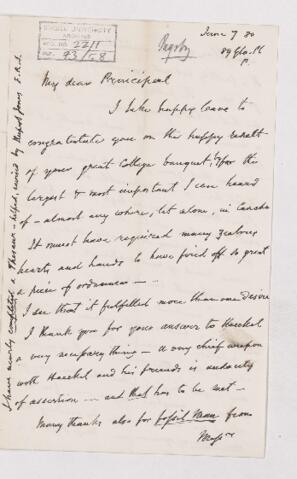 McGILL UNIVERSITY
ARCHIVES
ACC. NO. 2211
REF. 93/58
June 7 80
89 Glo. Pl
P.
My dear Principal
I take happy leave to
congratulate you on the happy result
of your great College banquet, by far the
largest & most important I can heard
of – almost any where, let alone, in Canada
It must have required many zealous
hearts and hands to have fired off so great
a piece of ordnance –
I see that it fulfilled more than one desire
I thank you for your answer to Haeckel
a very necessary thing – a very chief weapon
with Haeckel and his friends is audacity
of assertion – and that has to be met –
Many thanks also for fossil Man from
Messrs
I have nearly completed a Thesaur – helped, revised by Rupert Jones F.R.S.